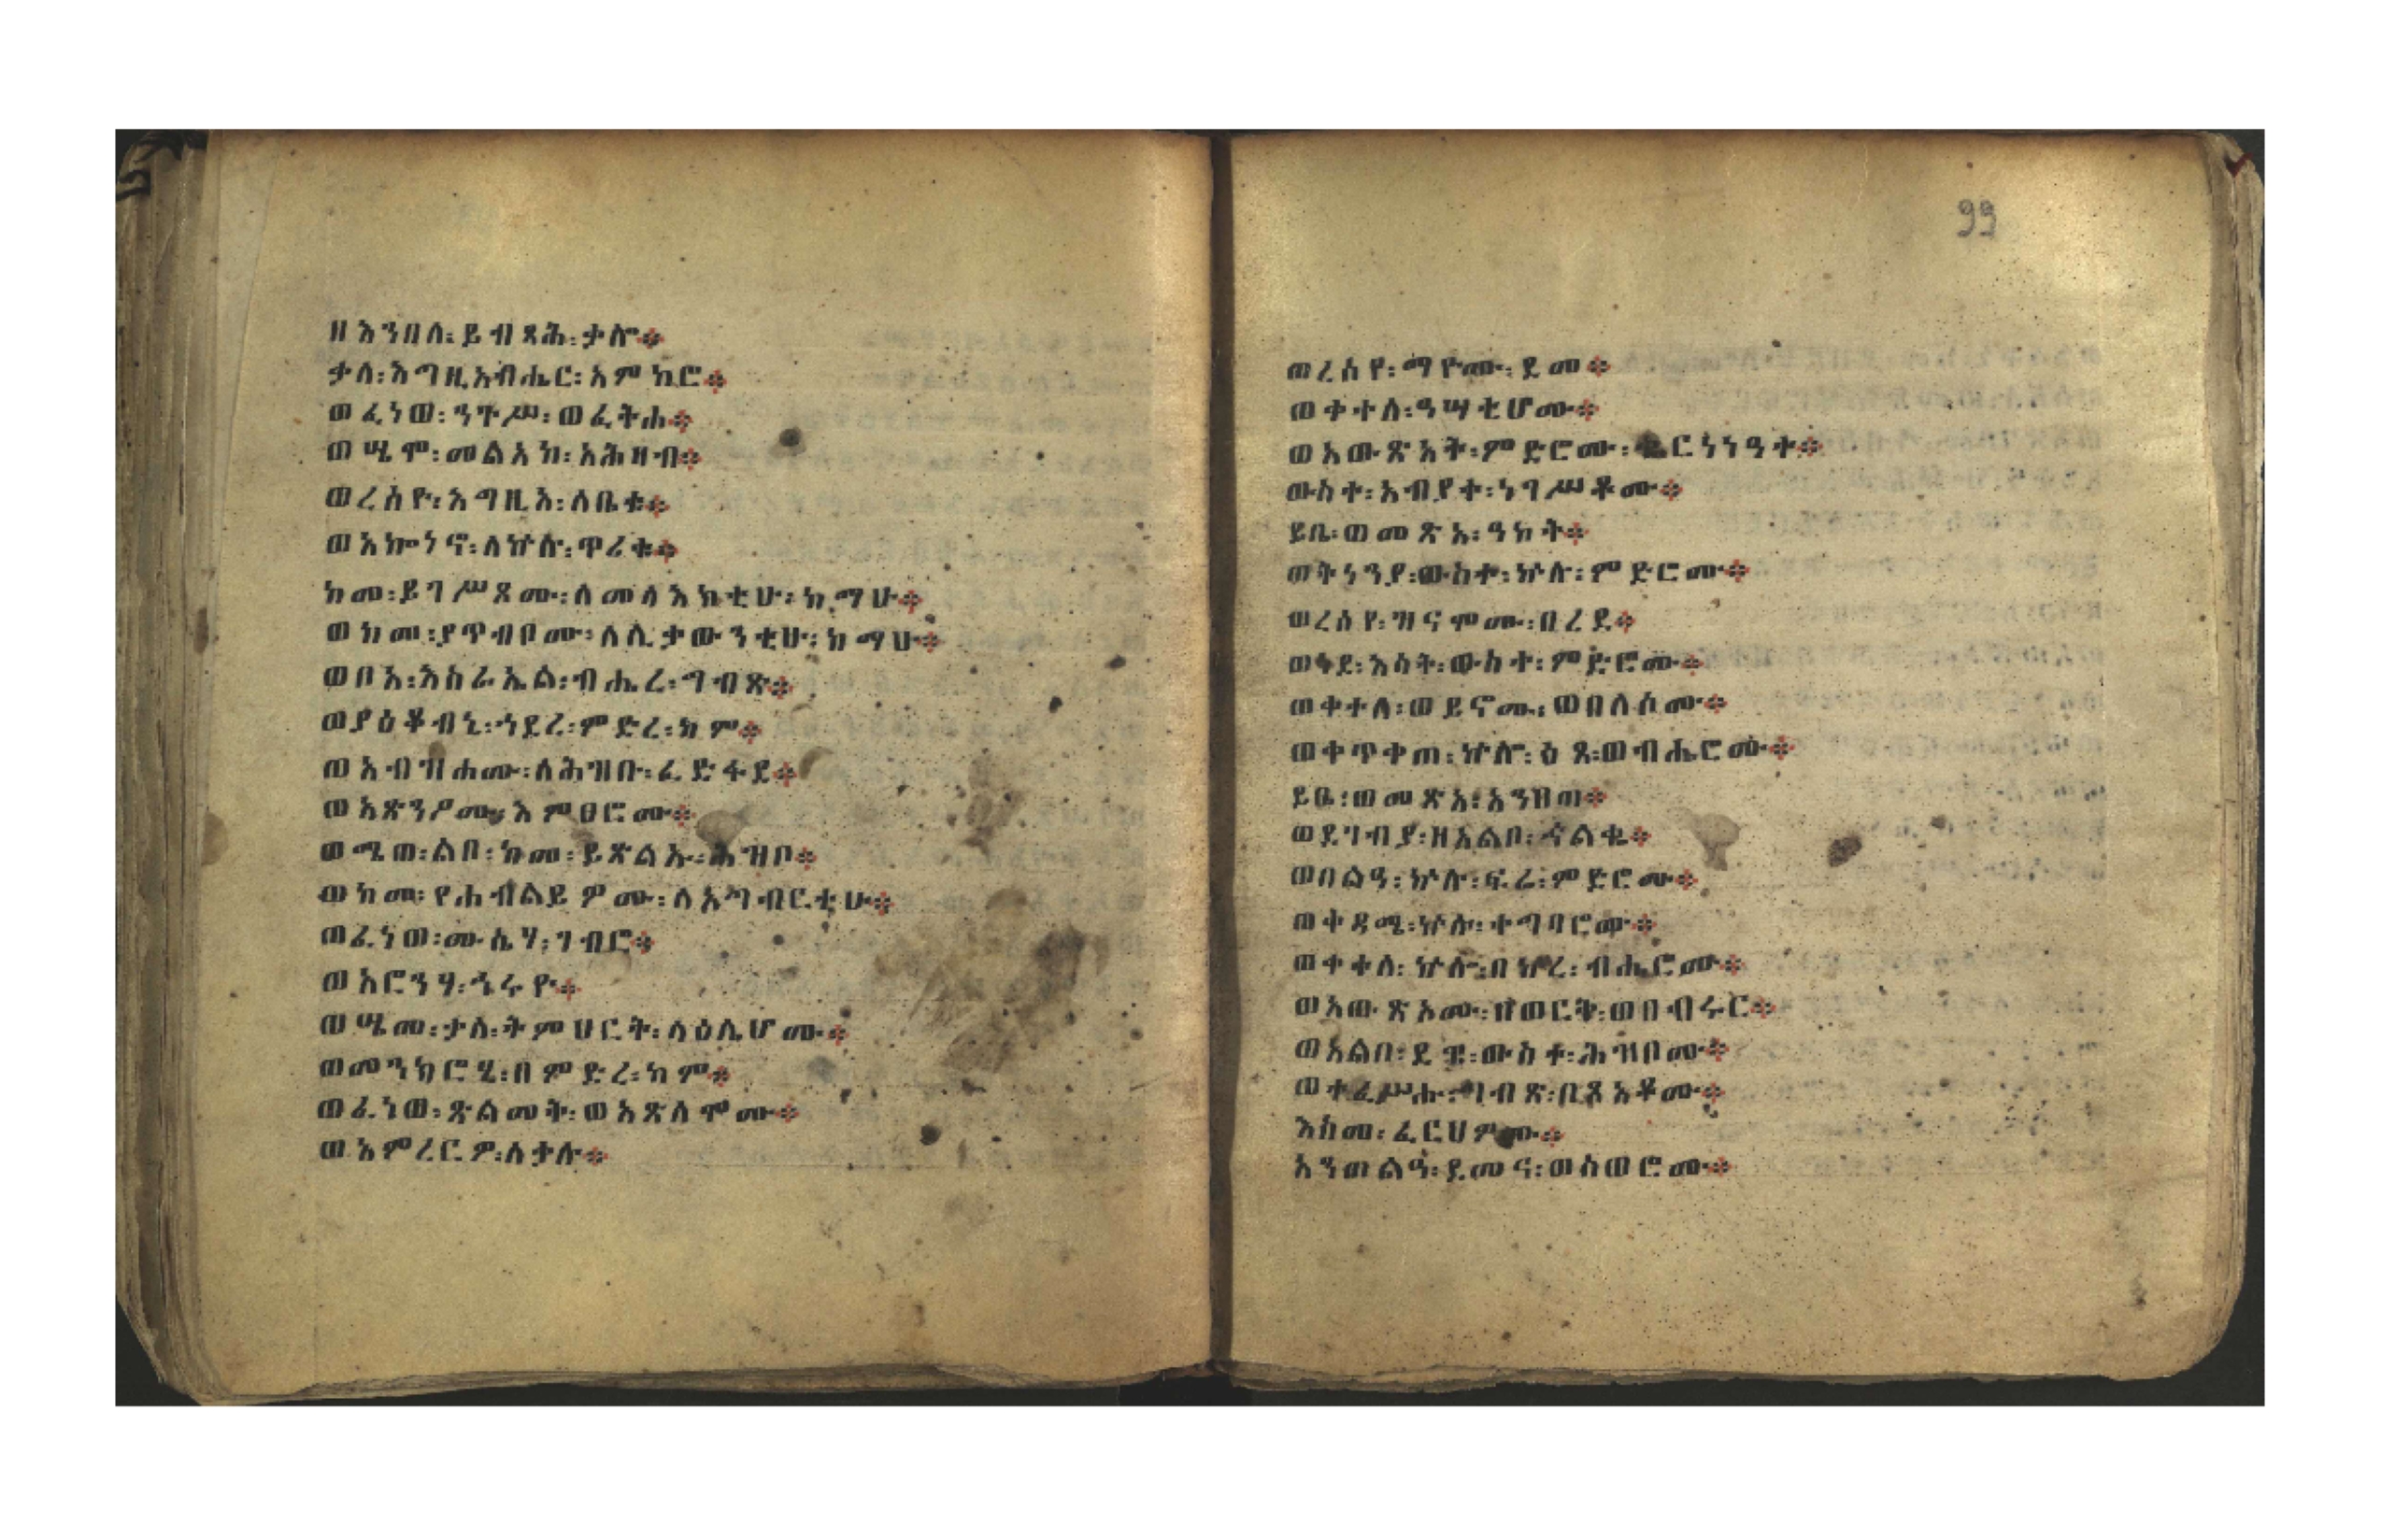 ዘእንበለ፡ይብጻሕ፡ቃሉ።
ቃለ፡እግዚአብሔር፡አምከሮ።
ወፈነወ፡ንጉሥ፡ወፈትሐ።
ወሤሞ፡መልአከ፡አሕዛብ።
ወረሰዮ፡እግዚአ፡ለቤቱ።
ወአኰነኖ፡ለኵሉ፡ጥሪቱ።
ከመ፡ይገሥጾሙ፡ለመላእክቲሁ፡ከማሁ።
ወከመ፡ያጥብቦሙ፡ለሊቃውንቲሁ፡ከማሁ።
ወቦአ፡እስራኤል፡ብሔረ፡ግብጽ።
ወያዕቆብኒ፡ኀደረ፡ምድረ፡ካም።
ወአብዝሖሙ፡ለሕዝቡ፡ፈድፋደ።
ወአጽንዖሙ፡እምፀሮሙ።
ወሜጠ፡ልቦ፡ከመ፡ይጽልኡ፡ሕዝቦ።
ወከመ፡የሐብልይዎሙ፡ለአግብርቲሁ።
ወፈነወ፡ሙሴሃ፡ገብሮ።
ወአሮንሃ፡ኅሩዮ።
ወሤመ፡ቃለ፡ትምህርት፡ላዕሌሆሙ።
ወመንክሮሂ፡በምድረ፡ካም።
ወፈነወ፡ጽልመት፡ወአጽለሞሙ።
ወአምረርዎ፡ለቃሉ።
ወረሰየ፡ማዮሙ፡ደመ።
ወቀተለ፡ዓሣቲሆሙ።
ወአውጽአት፡ምድሮሙ፡ቈርነነዓተ።
ውስተ፡አብያተ፡ነገሥቶሙ።
ይቤ፡ወመጽአ፡ዓከት።
ወትነንያ፡ውስተ፡ኵሉ፡ምድሮሙ።
ወረሰየ፡ዝናሞሙ፡በረደ።
ወነደ፡እሳት፡ውስተ፡ምድሮሙ።
ወቀተለ፡ወይኖሙ፡ወበለሶሙ።
ወቀጥቀጠ፡ኵሎ፡ዕፀ፡ወብሔሮሙ።
ይቤ፡ወመጽአ፡አንበጣ።
ወደገብያ፡ዘአልቦ፡ኍልቈ።
ወበልዓ፡ኵሉ፡ፍሬ፡ምድሮሙ።
ወቀዳሜ፡ኵሉ፡ተግባሮሙ።
ወቀተለ፡ኵሎ፡በኵረ፡ብሔሮሙ።
ወአውጽአሙ፡በወርቅ፡ወበብሩር።
ወአልቦ፡ደዌ፡ውስተ፡ሕዝቦሙ።
ወተፈሥሐ፡ግብጽ፡በፆአቶሙ።
እስመ፡ፈርህዎሙ።
አንጦልዓ፡ደመና፡ወሰወሮሙ።